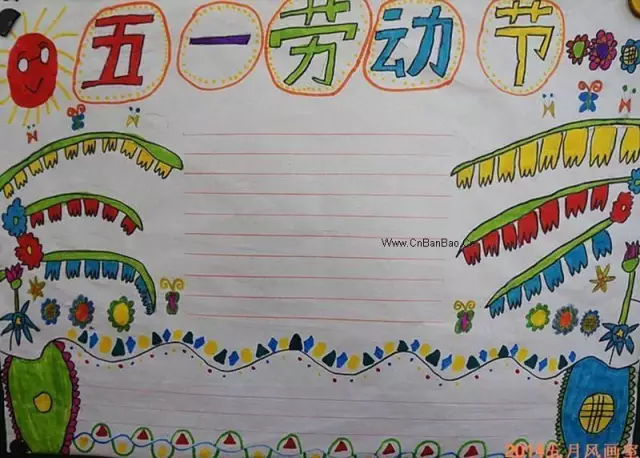 五一劳动节
Www.CnBanBao.C
2014年月风画室